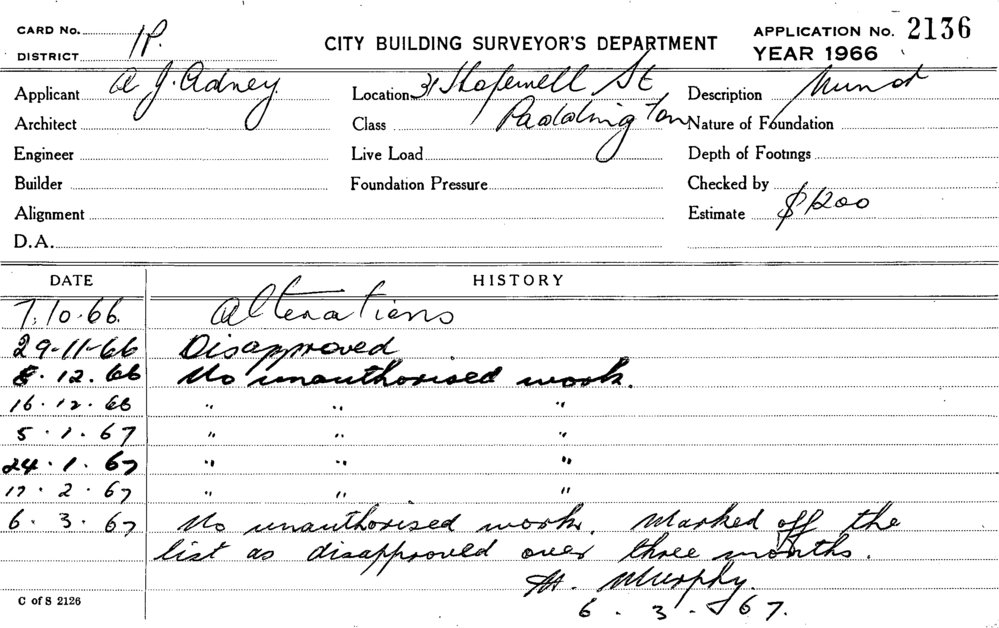 CARD No. 1P. CITY BUILDING SURVEYOR'S DEPARTMENT APPLICATION No. 2136
DISTRICT YEAR 1966
Applicant A J. Adney Location 31 Hopewell St Description
Architect Class Paddington Nature of Foundation
Engineer Live Load Depth of Footings
Builder Foundation Pressure Checked by
Alignment Estimate $1200
D.A.
DATE HISTORY
7.10.66. Alterations
29-11-66 Disapproved
8.12.66 No unauthorised work.
16.12.66 " " "
5.1.67 " " "
24.1.67 " " "
17.2.67 " " "
6.3.67 No unauthorised work. Marked off the
list as disapproved over three months.
Murphy.
6.3.67.
C of S 2126